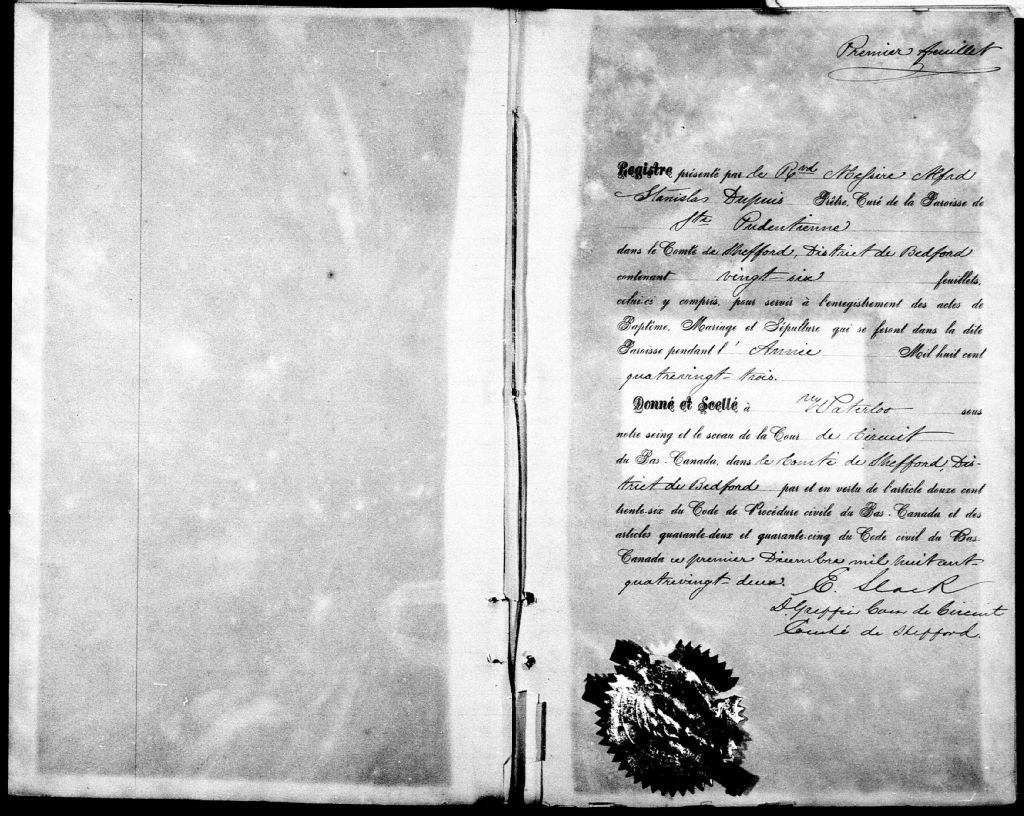 Premier feuillet
Registre présenté par le Rvd Messire Alfred
Stanislas Dupuis Prêtre, Curé de la Paroisse de
Ste Pudentienne
dans le Comté de Shefford, District de Bedford
contenant vingt-six feuillets,
celui-ci y compris, pour servir à l'enregistrement des actes de
Baptême, Mariage et Sépulture qui se feront dans la dite
Paroisse pendant l'Année Mil huit cent
quatrevingt-trois.
Donné et Scellé à Waterloo sous
notre seing et le sceau de la Cour de Circuit
du Bas-Canada, dans le Comté de Shefford, Dis-
trict de Bedford par et en vertu de l'article douze cent
trente-six du Code de Procédure civile du Bas-Canada et des
articles quarante-deux et quarante-cinq du Code civil du Bas-
Canada ce premier Décembre mil huit cent
quatrevingt-deux.
E. Slack
D. Greffier Cour de Circuit
Comté de Shefford.